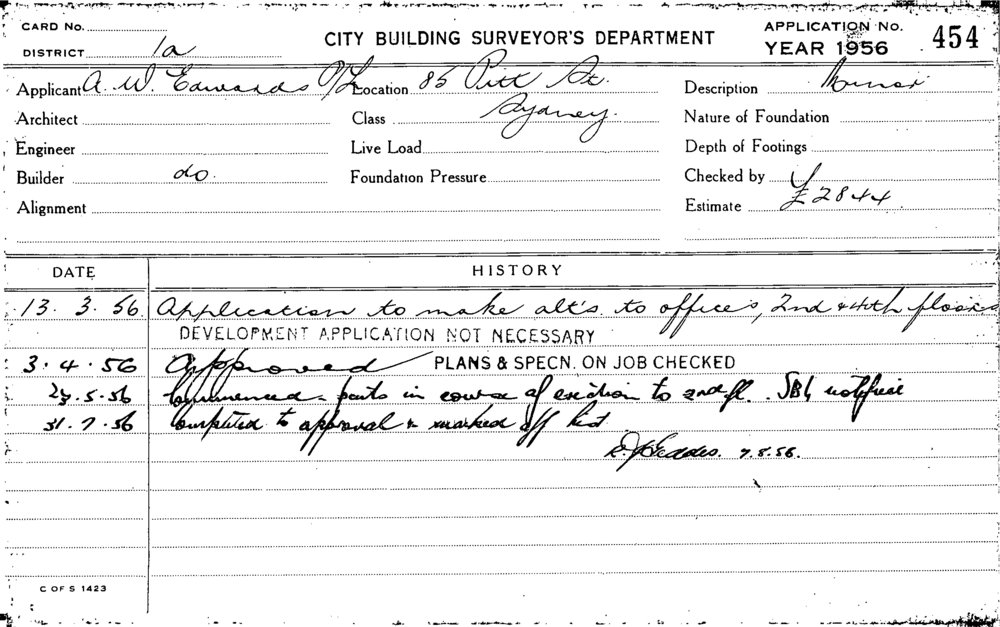 CARD No.
APPLICATION No. 454
DISTRICT 1a
CITY BUILDING SURVEYOR'S DEPARTMENT
YEAR 1956
Applicant A. W. Edwards P/L Location 85 Pitt St. Description Minor
Architect Class Sydney. Nature of Foundation
Engineer Live Load Depth of Footings
Builder do. Foundation Pressure Checked by
Alignment Estimate £2844
DATE HISTORY
13. 3. 56 Application to make alt's. to offices, 2nd & 4th floors
DEVELOPMENT APPLICATION NOT NECESSARY
3. 4. 56 Approved PLANS & SPECN. ON JOB CHECKED
5. 56 Commenced - parts in course of erection to 2nd fl. notified
31. 7. 56 Completed to approval & marked off list
7.8.56.
C OF S 1423